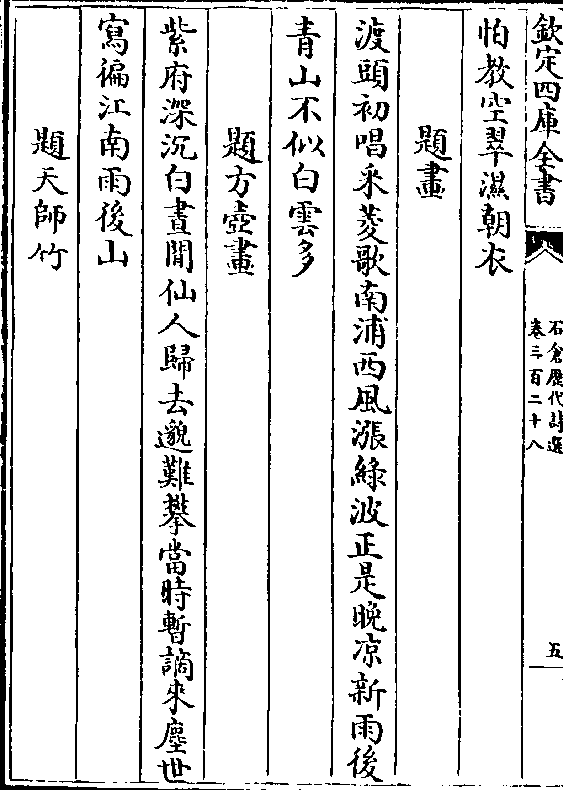 欽定四庫全書
石倉歷代詩選
卷三百二十八
五
怕教空翠濕朝衣
題畫
渡頭初唱采菱歌南浦西風漲綠波正是晚凉新雨後
青山不似白雲多
題方壺畫
紫府深沉白晝閒仙人歸去邈難攀當時暫謫來塵世
寫徧江南雨後山
題天師竹